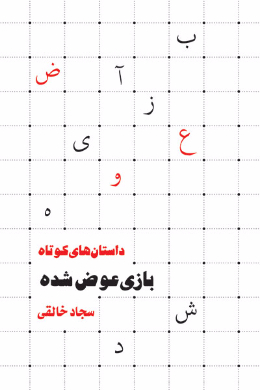 ب
ض آ
ز
ی ع
و
ه
داستان‌های کوتاه
بازی عوض شده
سجاد خالقی
ش
د